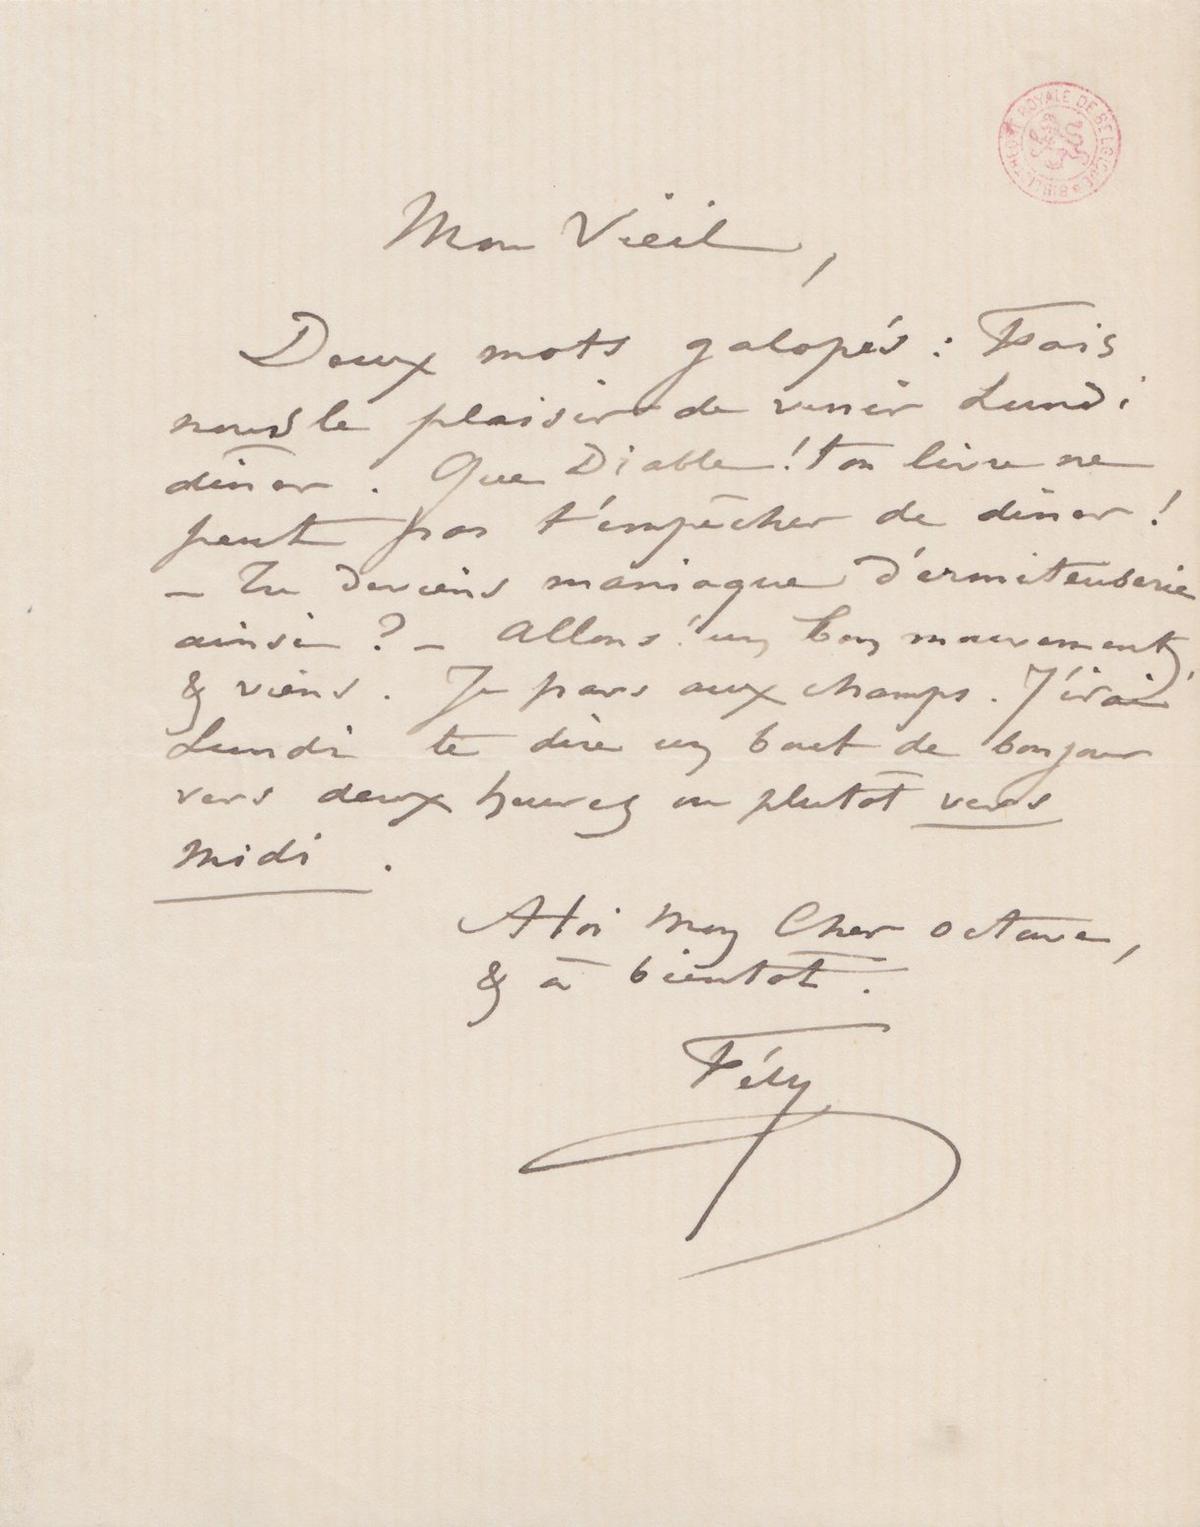 BIBLIOTHÈQUE ROYALE DE BELGIQUE
Mon Vieil,
Deux mots galopés : Fais
nous le plaisir de venir Lundi
dîner. Que Diable ! ton livre ne
peut pas t'empêcher de dîner !
– Tu deviens maniaque d'ermiteuserie
ainsi ? – Allons ! un bon mouvement,
& viens. Je pars aux champs. J'irai
Lundi te dire un bout de bonjour
vers deux heures ou plutôt vers
midi.
A toi mon Cher octave,
& à bientôt.
Fély